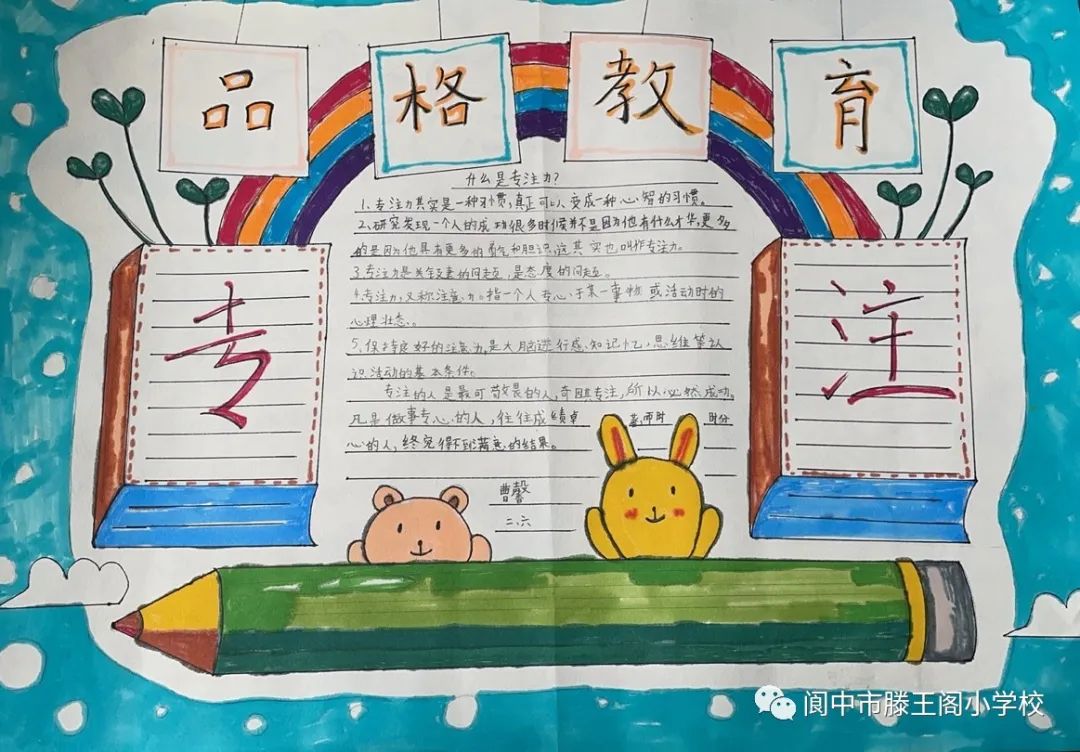 品格教育
什么是专注力?
专
注
1.专注力其实是一种习惯,真正可以变成一种心智的习惯。
2.研究发现一个人的成功很多时候并不是因为他有什么才华,更多
的是因为他具有更多的勇气和胆识,这其实也叫作专注力。
3.专注力是关键的问题,是态度的问题。
4.专注力,又称注意力。指一个人专心于某一事物或活动时的
心理状态。
5.保持良好的注意力,是大脑进行感知记忆,思维等认
识活动的基本条件。
专注的人是最可敬畏的人,专注,所以必然成功。
凡是做事专心的人,往往成绩卓
时分
心的人,终究得不到满意的结果。
曹馨
二、六
阆中市滕王阁小学校